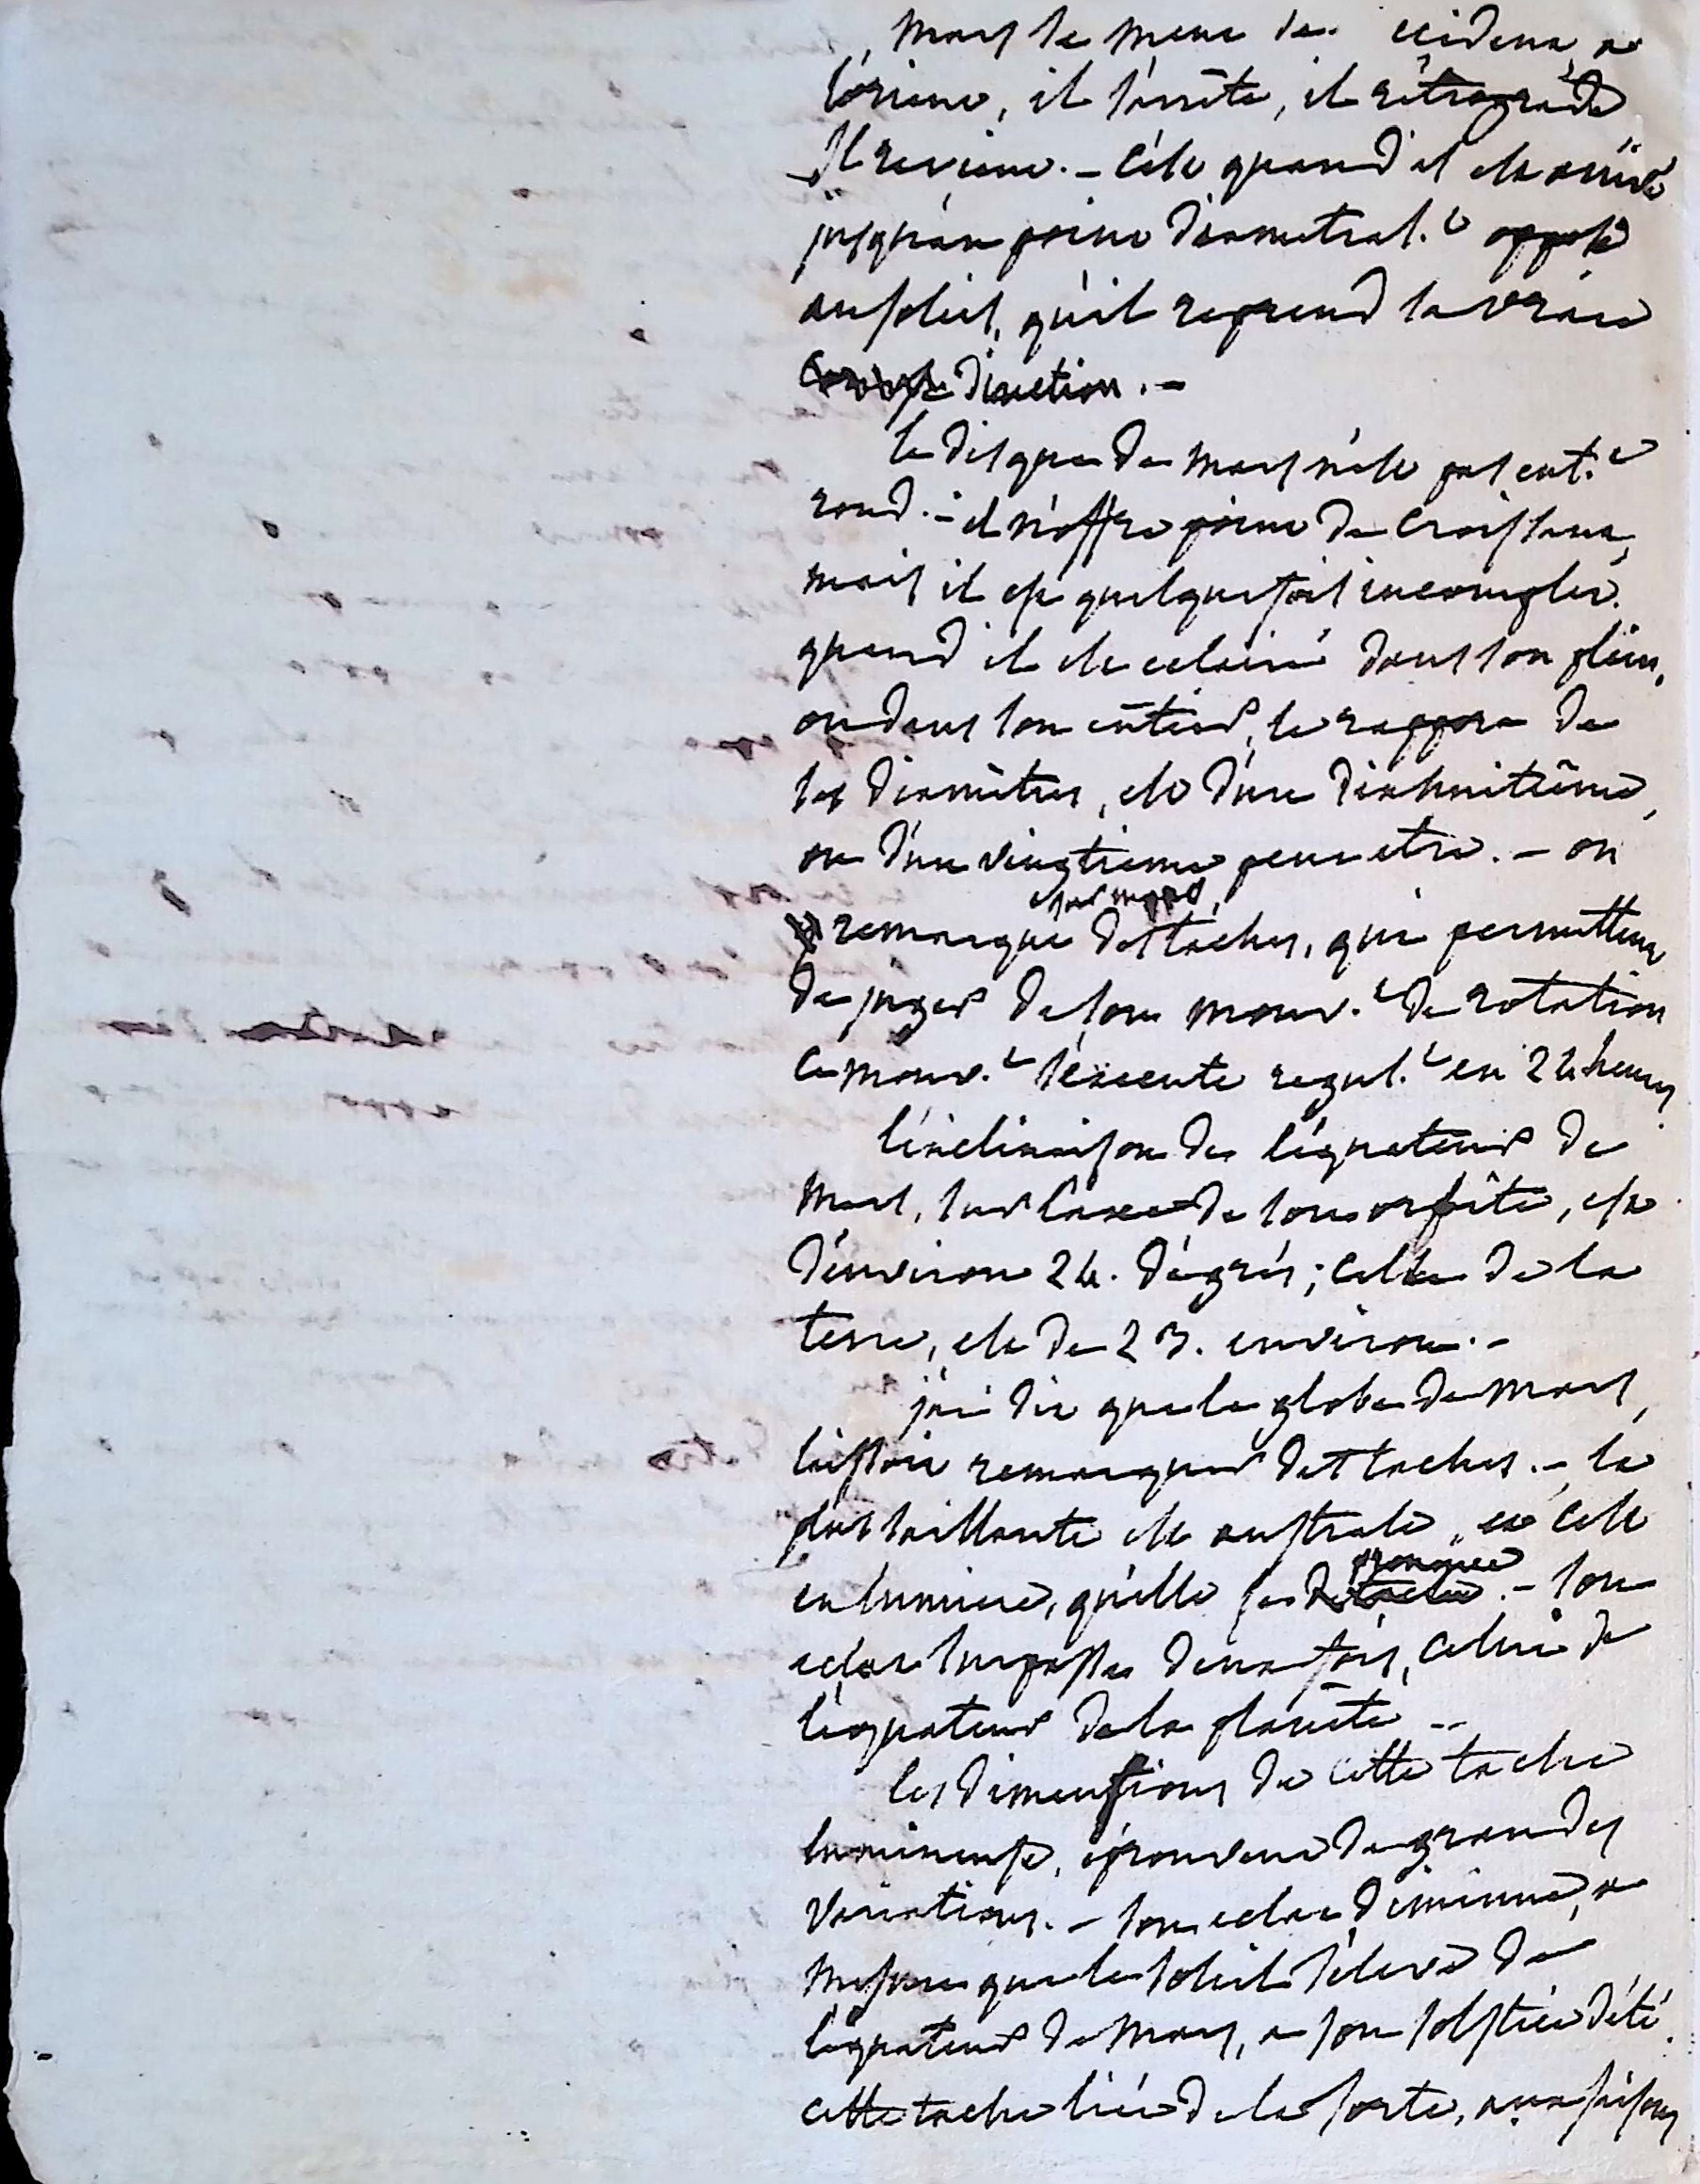 Mars se meut de l'occident, a
l'orient, il s'arrête, il rétrograde
Il revient. - C'est quand il est arrivé
jusqu'au point diamétral.t opposé
au soleil, qu'il reprend la vraie
direction. -
le disque de Mars n'est pas ent.t
rond. - il n'offre point de croissant,
mais il est quelquefois incomplet.
quand il est eclairé dans son plein,
ou dans son entier, le rapport de
ses diamètres, est d'un dixhuitième,
ou d'un vingtieme peut etre. - on
remarque des taches, qui permettent
de juger de son mouv.t de rotation
ce mouv.t s'éxecute regul.t en 24 heures
l'inclinaison de l'équateur de
Mars, sur l'axe de son orbite, est
d'environ 24. dégrés; celle de la
terre, est de 23. environ. -
j'ai dit que le globe de Mars,
laissoit remarquer des taches. - la
plus saillante est australe, et c'est
en lumiere, qu'elle se prononce. - son
eclat surpasse deux fois, celui de
l'équateur de la planête -
les dimensions de cette tache
lumineuse, éprouvent de grandes
variations. - son eclat diminue, a
mesure que le soleil s'éleve de
l'équateur de Mars, a son solstice d'été.
cette tache liée de la sorte, aux saisons